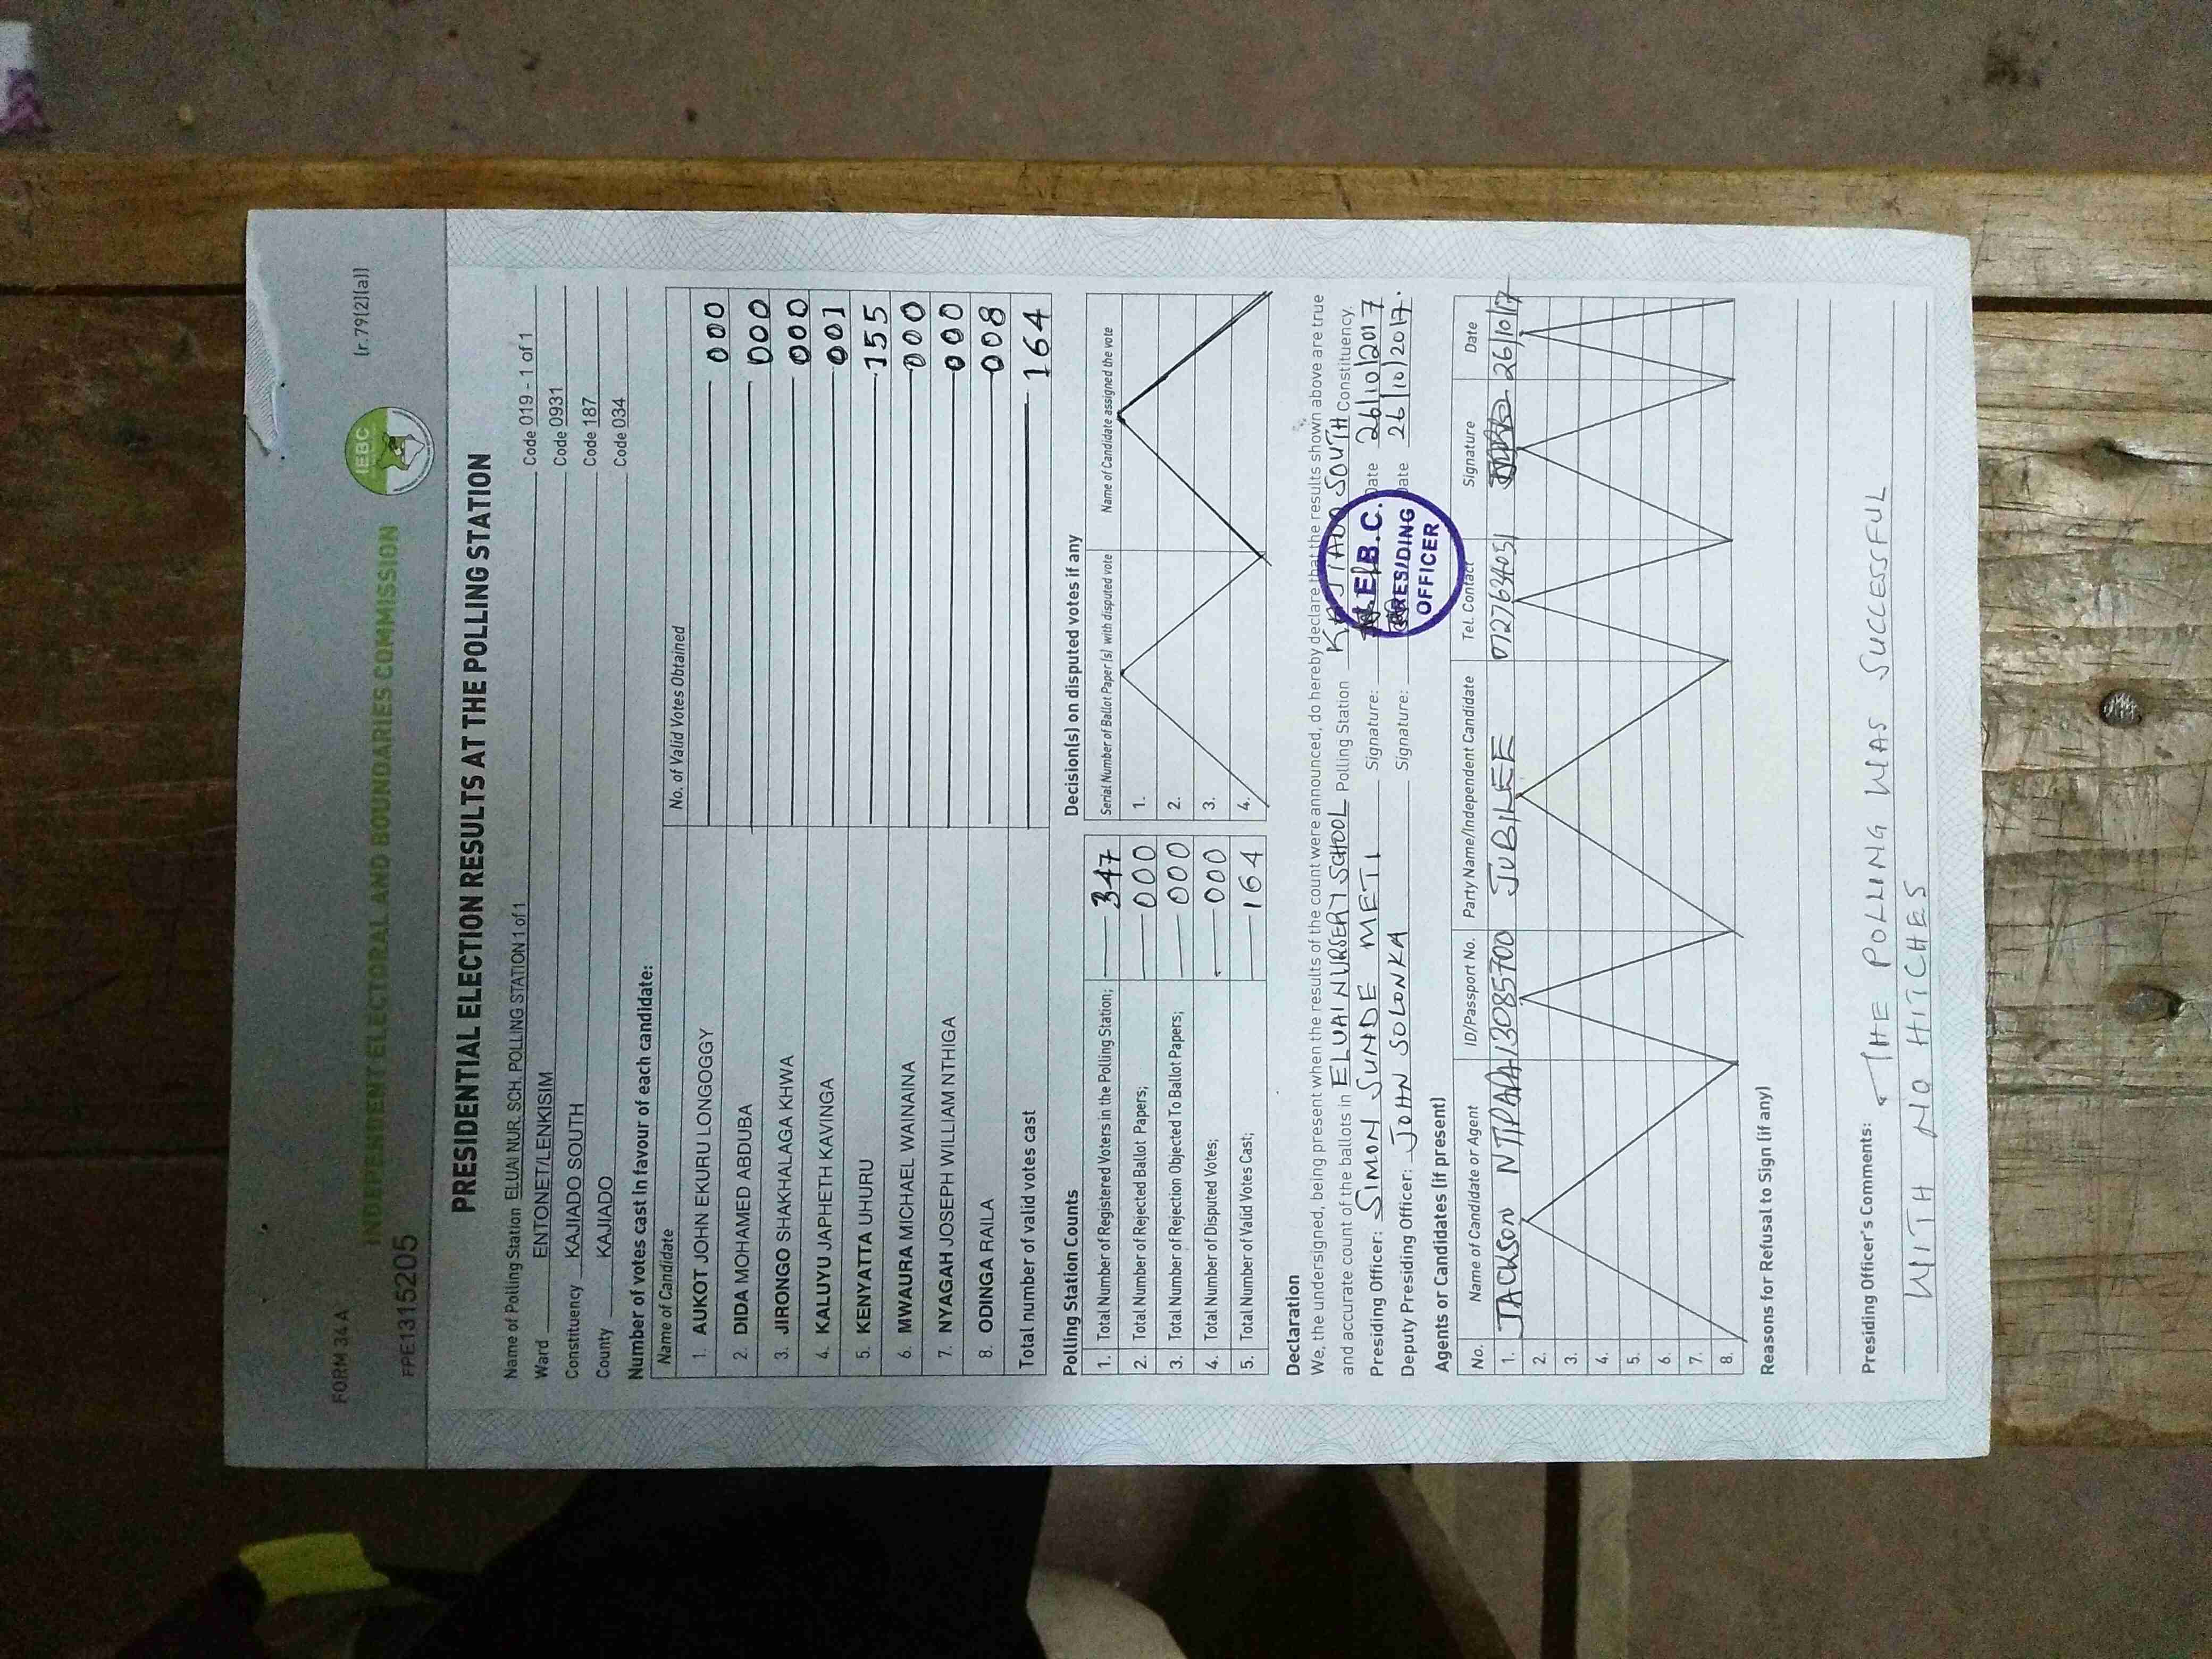 FORM 34 A (r. 79(2)(a))
INDEPENDENT ELECTORAL AND BOUNDARIES COMMISSION
IEBC
PRESIDENTIAL ELECTION RESULTS AT THE POLLING STATION
Name of Polling Station ELUAI NUR. SCH. POLLING STATION 1 of 1 Code 019 - 1 of 1
Ward ENTONET/LENKISIM Code 0931
Constituency KAJIADO SOUTH Code 187
County KAJIADO Code 034
Number of votes cast in favour of each candidate:
Name of Candidate No. of Valid Votes Obtained
1. AUKOT JOHN EKURU LONGOGGY 000
2. DIDA MOHAMED ABDUBA 000
3. JIRONGO SHAKHALAGA KHWA 000
4. KALUYU JAPHETH KAVINGA 001
5. KENYATTA UHURU 155
6. MWAURA MICHAEL WAINAINA 000
7. NYAGAH JOSEPH WILLIAM NTHIGA 000
8. ODINGA RAILA 008
Total number of valid votes cast 164
Polling Station Counts
1. Total Number of Registered Voters in the Polling Station; 347
2. Total Number of Rejected Ballot Papers; 000
3. Total Number of Rejection Objected To Ballot Papers; 000
4. Total Number of Disputed Votes; 000
5. Total Number of Valid Votes Cast; 164
Decision(s) on disputed votes if any
Serial Number of Ballot Paper(s) with disputed vote Name of Candidate assigned the vote
1.
2.
3.
4.
Declaration
We, the undersigned, being present when the results of the count were announced, do hereby declare that the results shown above are true
and accurate count of the ballots in ELUAI NURSERY SCHOOL Polling Station KAJIADO SOUTH Constituency.
Presiding Officer: SIMON SUNDE METI Signature: Date 26/10/2017
Deputy Presiding Officer: JOHN SOLONKA Signature: Date 26/10/2017.
I.E.B.C.
PRESIDING
OFFICER
Agents or Candidates (if present)
No. Name of Candidate or Agent ID/Passport No. Party Name/Independent Candidate Tel. Contact Signature Date
1. JACKSON 13085700 JUBILEE 26/10/17
2.
3.
4.
5.
6.
7.
8.
Reasons for Refusal to Sign (if any)
Presiding Officer's Comments: THE POLLING WAS SUCCESSFUL
WITH NO HITCHES